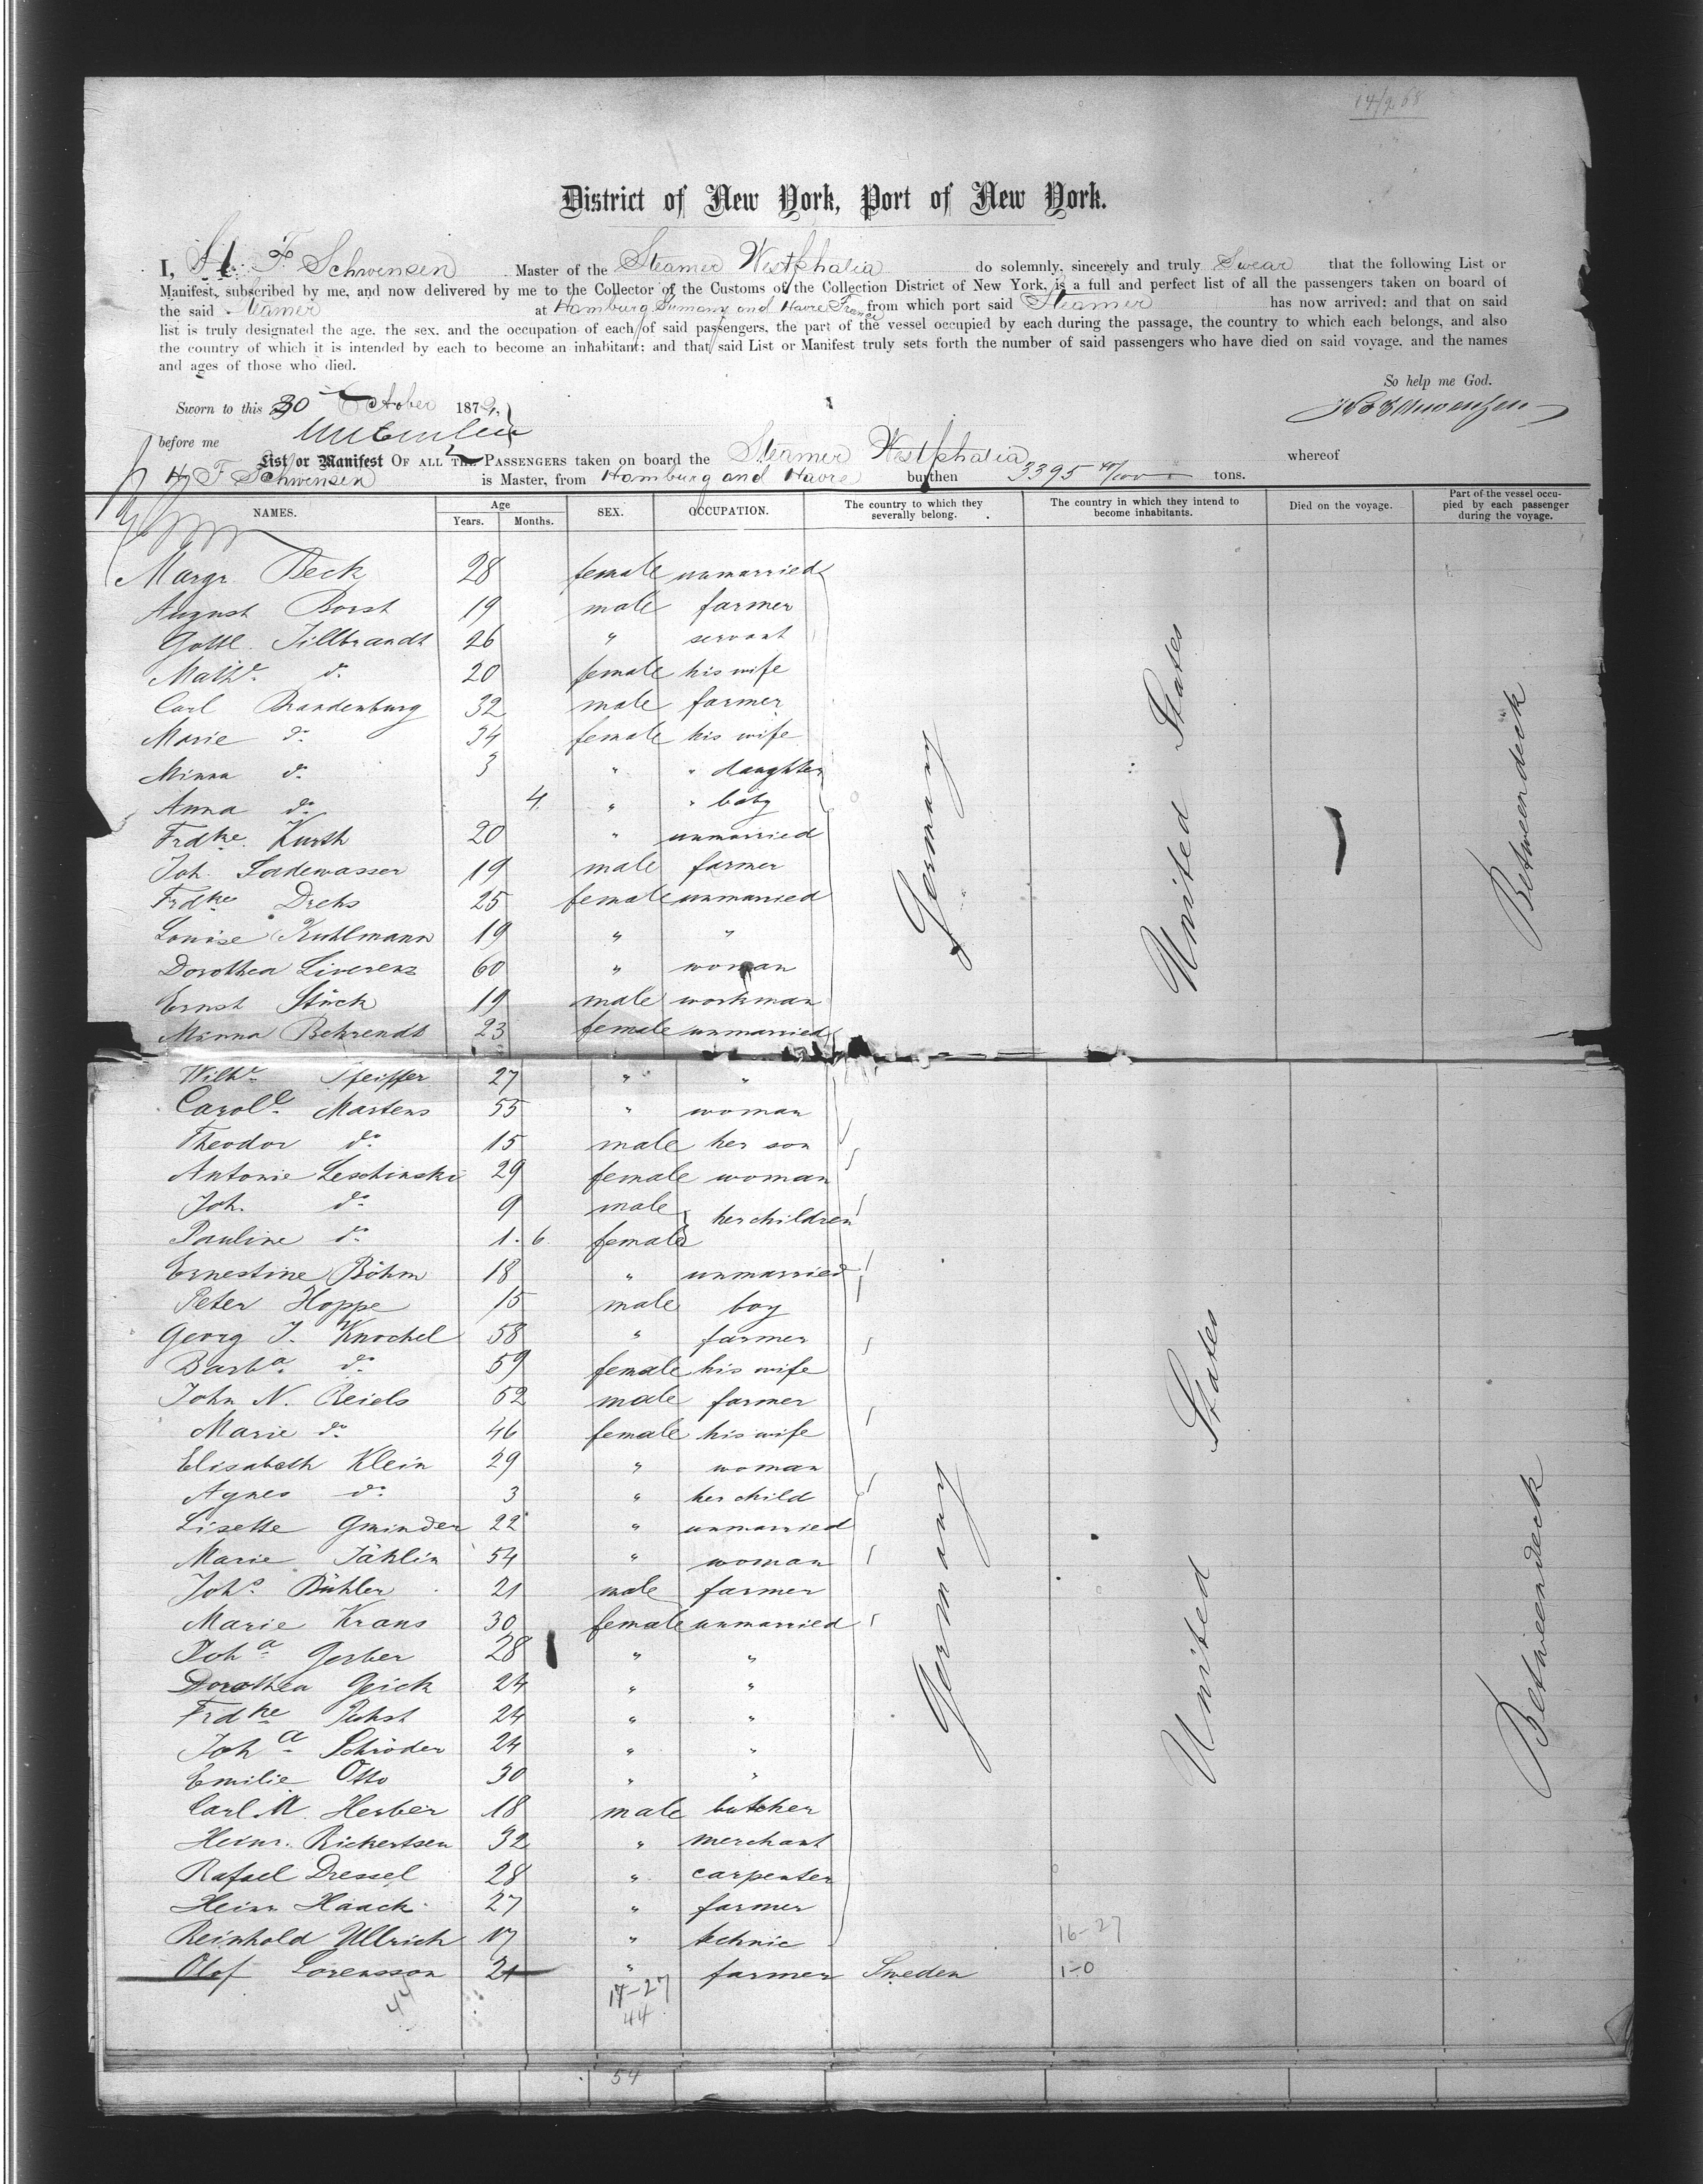 14/268
District of New York, Port of New York.
I, H. F. Schwensen Master of the Steamer Westphalia do solemnly, sincerely and truly Swear that the following List or
Manifest, subscribed by me, and now delivered by me to the Collector of the Customs of the Collection District of New York, is a full and perfect list of all the passengers taken on board of
the said Steamer at Hamburg Germany and Havre France from which port said Steamer has now arrived: and that on said
list is truly designated the age, the sex, and the occupation of each of said passengers, the part of the vessel occupied by each during the passage, the country to which each belongs, and also
the country of which it is intended by each to become an inhabitant: and that said List or Manifest truly sets forth the number of said passengers who have died on said voyage, and the names
and ages of those who died.
So help me God.
Sworn to this 30 October 1872,
before me
List or Manifest OF ALL THE PASSENGERS taken on board the Steamer Westphalia whereof
H. F. Schwensen is Master, from Hamburg and Havre burthen 3395 tons.
NAMES. Age Years. Months. SEX. OCCUPATION. The country to which they severally belong. The country in which they intend to become inhabitants. Died on the voyage. Part of the vessel occupied by each passenger during the voyage.
Margr Beck 28 female unmarried
August Borst 19 male farmer
Gottl. Tillbrandt 26 " servant
Mathe. do 20 female his wife
Carl Brandenburg 32 male farmer
Marie do 34 female his wife
Minna do 3 " " daughter
Anna do 4 " " baby
Frdke. Kurth 20 " unmarried
Joh. Ladewasser 19 male farmer
Frdke Drehs 25 female unmarried
Louise Kuhlmann 19 " "
Dorothea Liverenz 60 " woman
Ernst Stück 19 male workman
Minna Behrendt 23 female unmarried
Germany
United States
Betweendeck
Wilhe. Pfeiffer 27 " "
Carole. Martens 55 " woman
Theodor do 15 male her son
Antonie Leschinski 29 female woman
Joh. do 9 male her children
Pauline do 1. 6 female
Ernestine Böhm 18 " unmarried
Peter Hoppe 15 male boy
Georg J. Knochel 58 " farmer
Barba. do 59 female his wife
John N. Reiels 52 male farmer
Marie do 46 female his wife
Elisabeth Klein 29 " woman
Agnes do 3 " her child
Lisette Gminder 22 " unmarried
Marie Tählin 54 " woman
Johs. Bühler 21 male farmer
Marie Krans 30 female unmarried
Joha Gerber 28 " "
Dorothea Geick 24 " "
Frdke Ruhst 24 " "
Joha Schröder 24 " "
Emilie Otto 30 " "
Carl A. Herber 18 male butcher
Heinr. Rickertsen 32 " merchant
Rafael Dressel 28 " carpenter
Heinr Haack 27 " farmer
Reinhold Ullrich 17 " technic 16-27
Olof Lorensson 21 " farmer Sweden 1-0
Germany
United States
Betweendeck
44
17-27
44
54